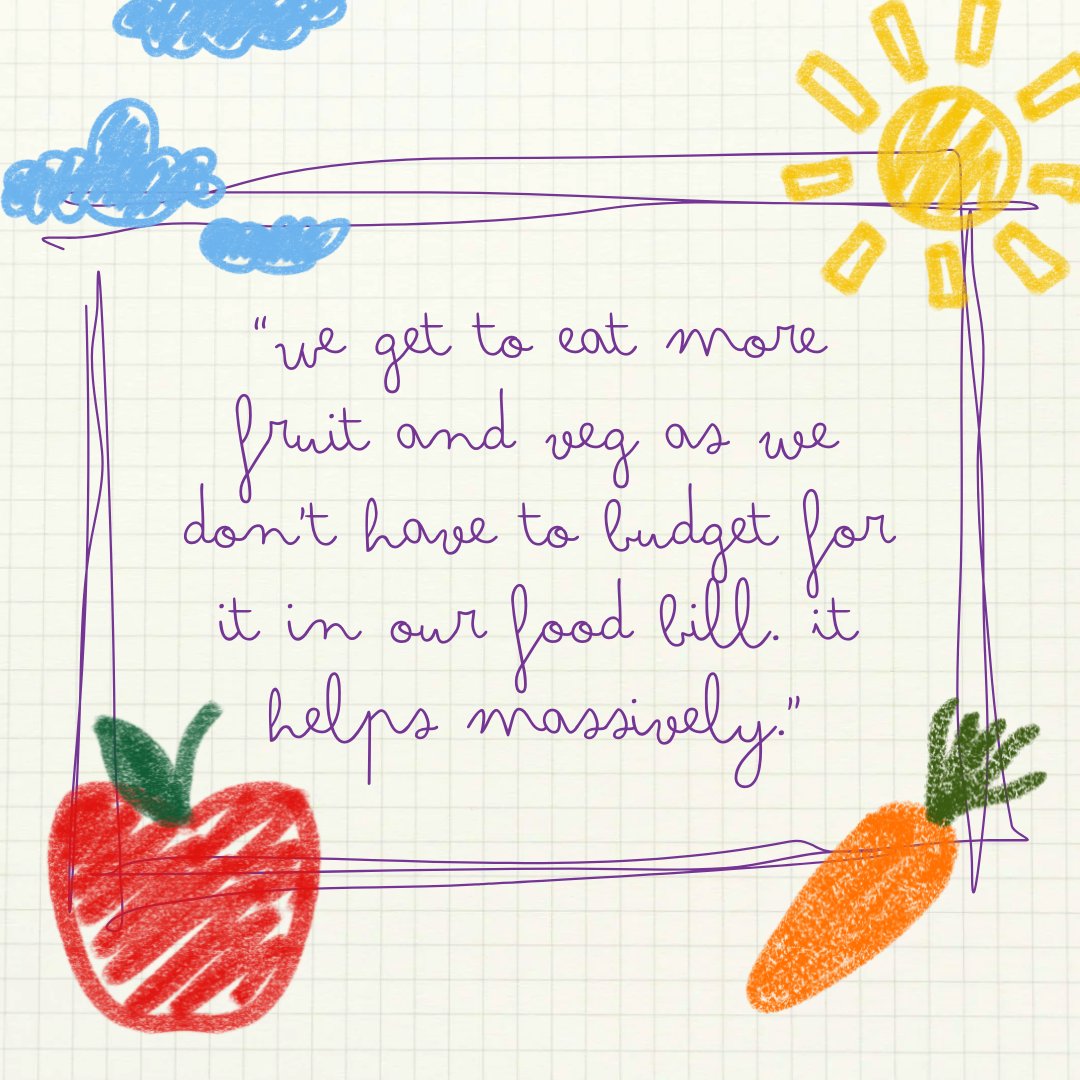 “we get to eat more
fruit and veg as we
don't have to budget for
it in our food bill. it
helps massively.”